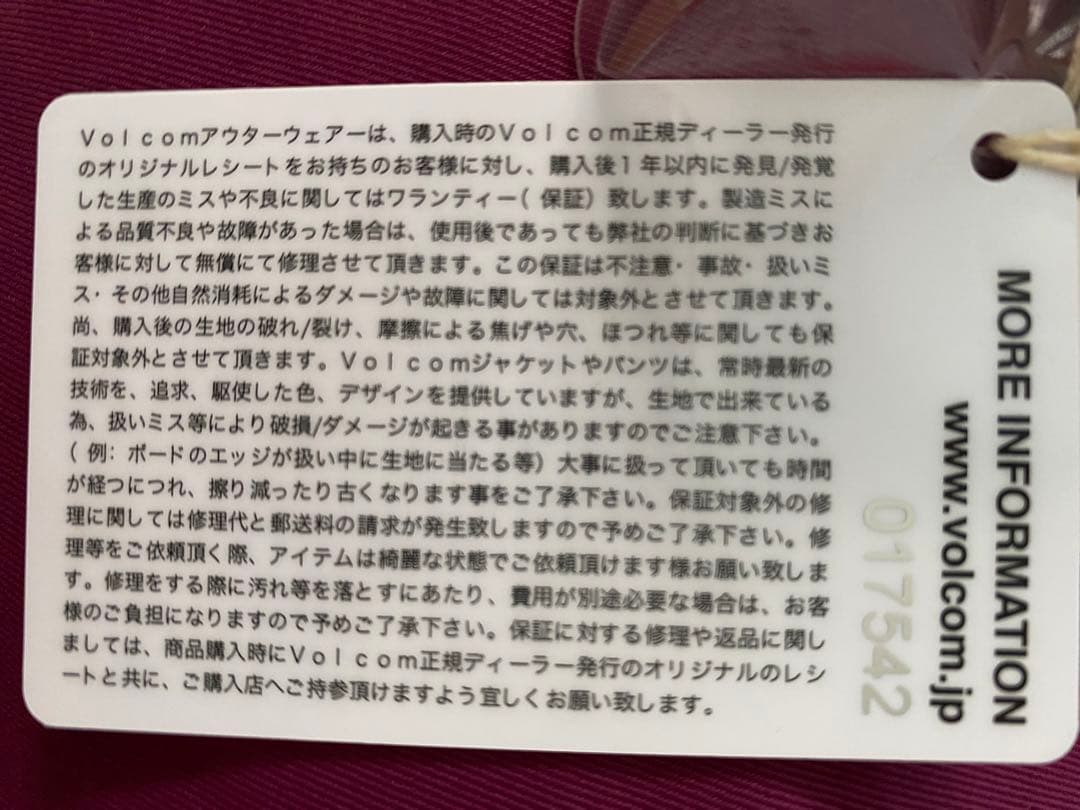 Volcomアウターウェアーは、購入時のVolcom正規ディーラー発行
のオリジナルレシートをお持ちのお客様に対し、購入後1年以内に発見/発覚
した生産のミスや不良に関してはワランティー( 保証）致します。製造ミスに
よる品質不良や故障があった場合は、使用後であっても弊社の判断に基づきお
客様に対して無償にて修理させて頂きます。この保証は不注意・事故・扱いミ
ス・その他自然消耗によるダメージや故障に関しては対象外とさせて頂きます。
尚、購入後の生地の破れ/裂け、摩擦による焦げや穴、ほつれ等に関しても保
証対象外とさせて頂きます。Volcomジャケットやパンツは、常時最新の
技術を、追求、駆使した色、デザインを提供していますが、生地で出来ている
為、扱いミス等により破損/ダメージが起きる事がありますのでご注意下さい。
( 例: ボードのエッジが扱い中に生地に当たる等）大事に扱って頂いても時間
が経つにつれ、擦り減ったり古くなります事をご了承下さい。保証対象外の修
理に関しては修理代と郵送料の請求が発生致しますので予めご了承下さい。修
理等をご依頼頂く際、アイテムは綺麗な状態でご依頼頂けます様お願い致しま
す。修理をする際に汚れ等を落とすにあたり、費用が別途必要な場合は、お客
様のご負担になりますので予めご了承下さい。保証に対する修理や返品に関し
ましては、商品購入時にVolcom正規ディーラー発行のオリジナルのレシ
ートと共に、ご購入店へご持参頂けますよう宜しくお願い致します。
MORE INFORMATION
www.volcom.jp
017542